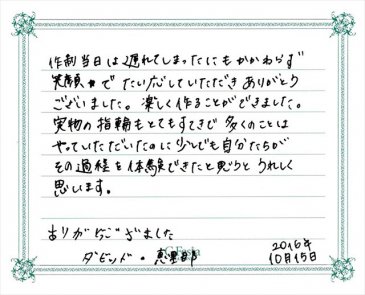 作制当日は遅れてしまったにもかかわらず
笑顔で たい応していただき ありがとう
ございました。 楽しく作ることができました。
実物の指輪もとてもすてきで 多くのことは
やっていただいたのに少しでも自分たちが
その過程を体験できたと思うと うれしく
思います。
ありがとうございました
ダビッド・恵里部
2016年
10月15日